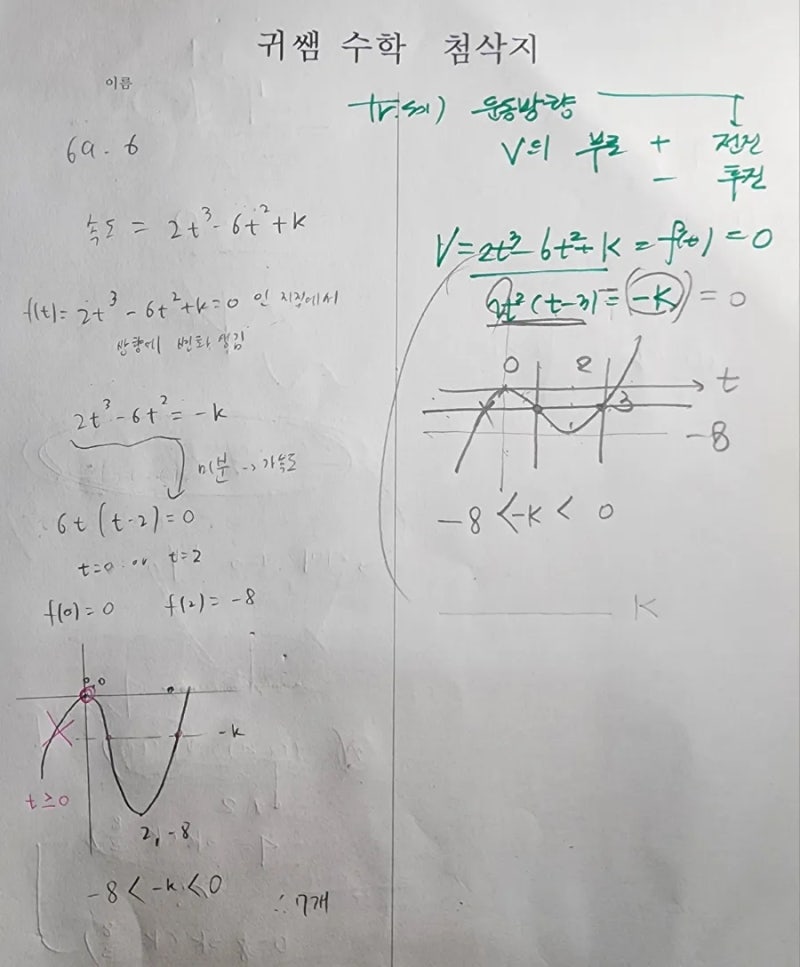 귀쌤 수학 첨삭지
이름
6a. 6
속도 = 2t³-6t²+k
f(t)= 2t³-6t²+k=0 인 지점에서
방향에 변화 생김
2t³-6t²= -k
미분 → 가속도
6t(t-2)=0
t=0 or t=2
f(0)=0 f(2)=-8
0,0
-k
t≥0
2,-8
-8<-k<0
∴ 7개
운동방향
V의 부호 + 전진
- 후진
V=2t³-6t²+k=f(t)=0
2t²(t-3)=-k=0
0 2
t
3
-8
-8<-k<0
K